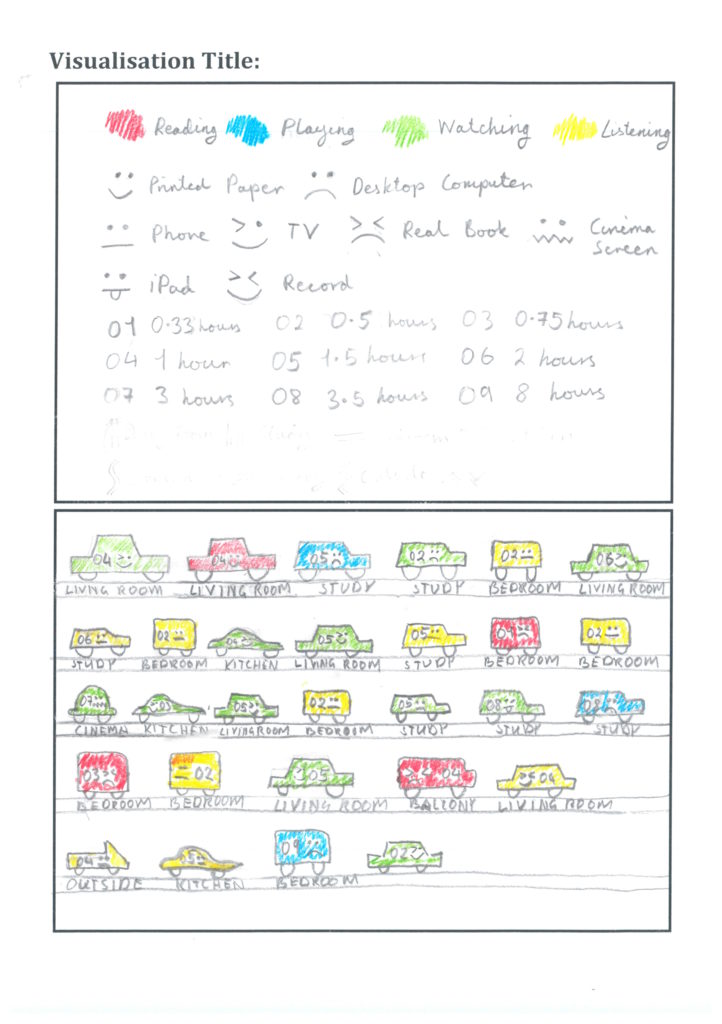 Visualisation Title:
Reading Playing Watching Listening
Printed Paper Desktop Computer
Phone TV Real Book Cinema Screen
iPad Record
01 0.33 hours 02 0.5 hours 03 0.75 hours
04 1 hour 05 1.5 hours 06 2 hours
07 3 hours 08 3.5 hours 09 8 hours
04 04 05 02 02 06
LIVING ROOM LIVING ROOM STUDY STUDY BEDROOM LIVING ROOM
06 02 04 05 05 09 02
STUDY BEDROOM KITCHEN LIVING ROOM STUDY BEDROOM BEDROOM
07 03 05 02 05 08 08
CINEMA KITCHEN LIVING ROOM BEDROOM STUDY STUDY STUDY
03 02 05 04 04
BEDROOM BEDROOM LIVING ROOM BALCONY LIVING ROOM
04 05 09 07
OUTSIDE KITCHEN BEDROOM